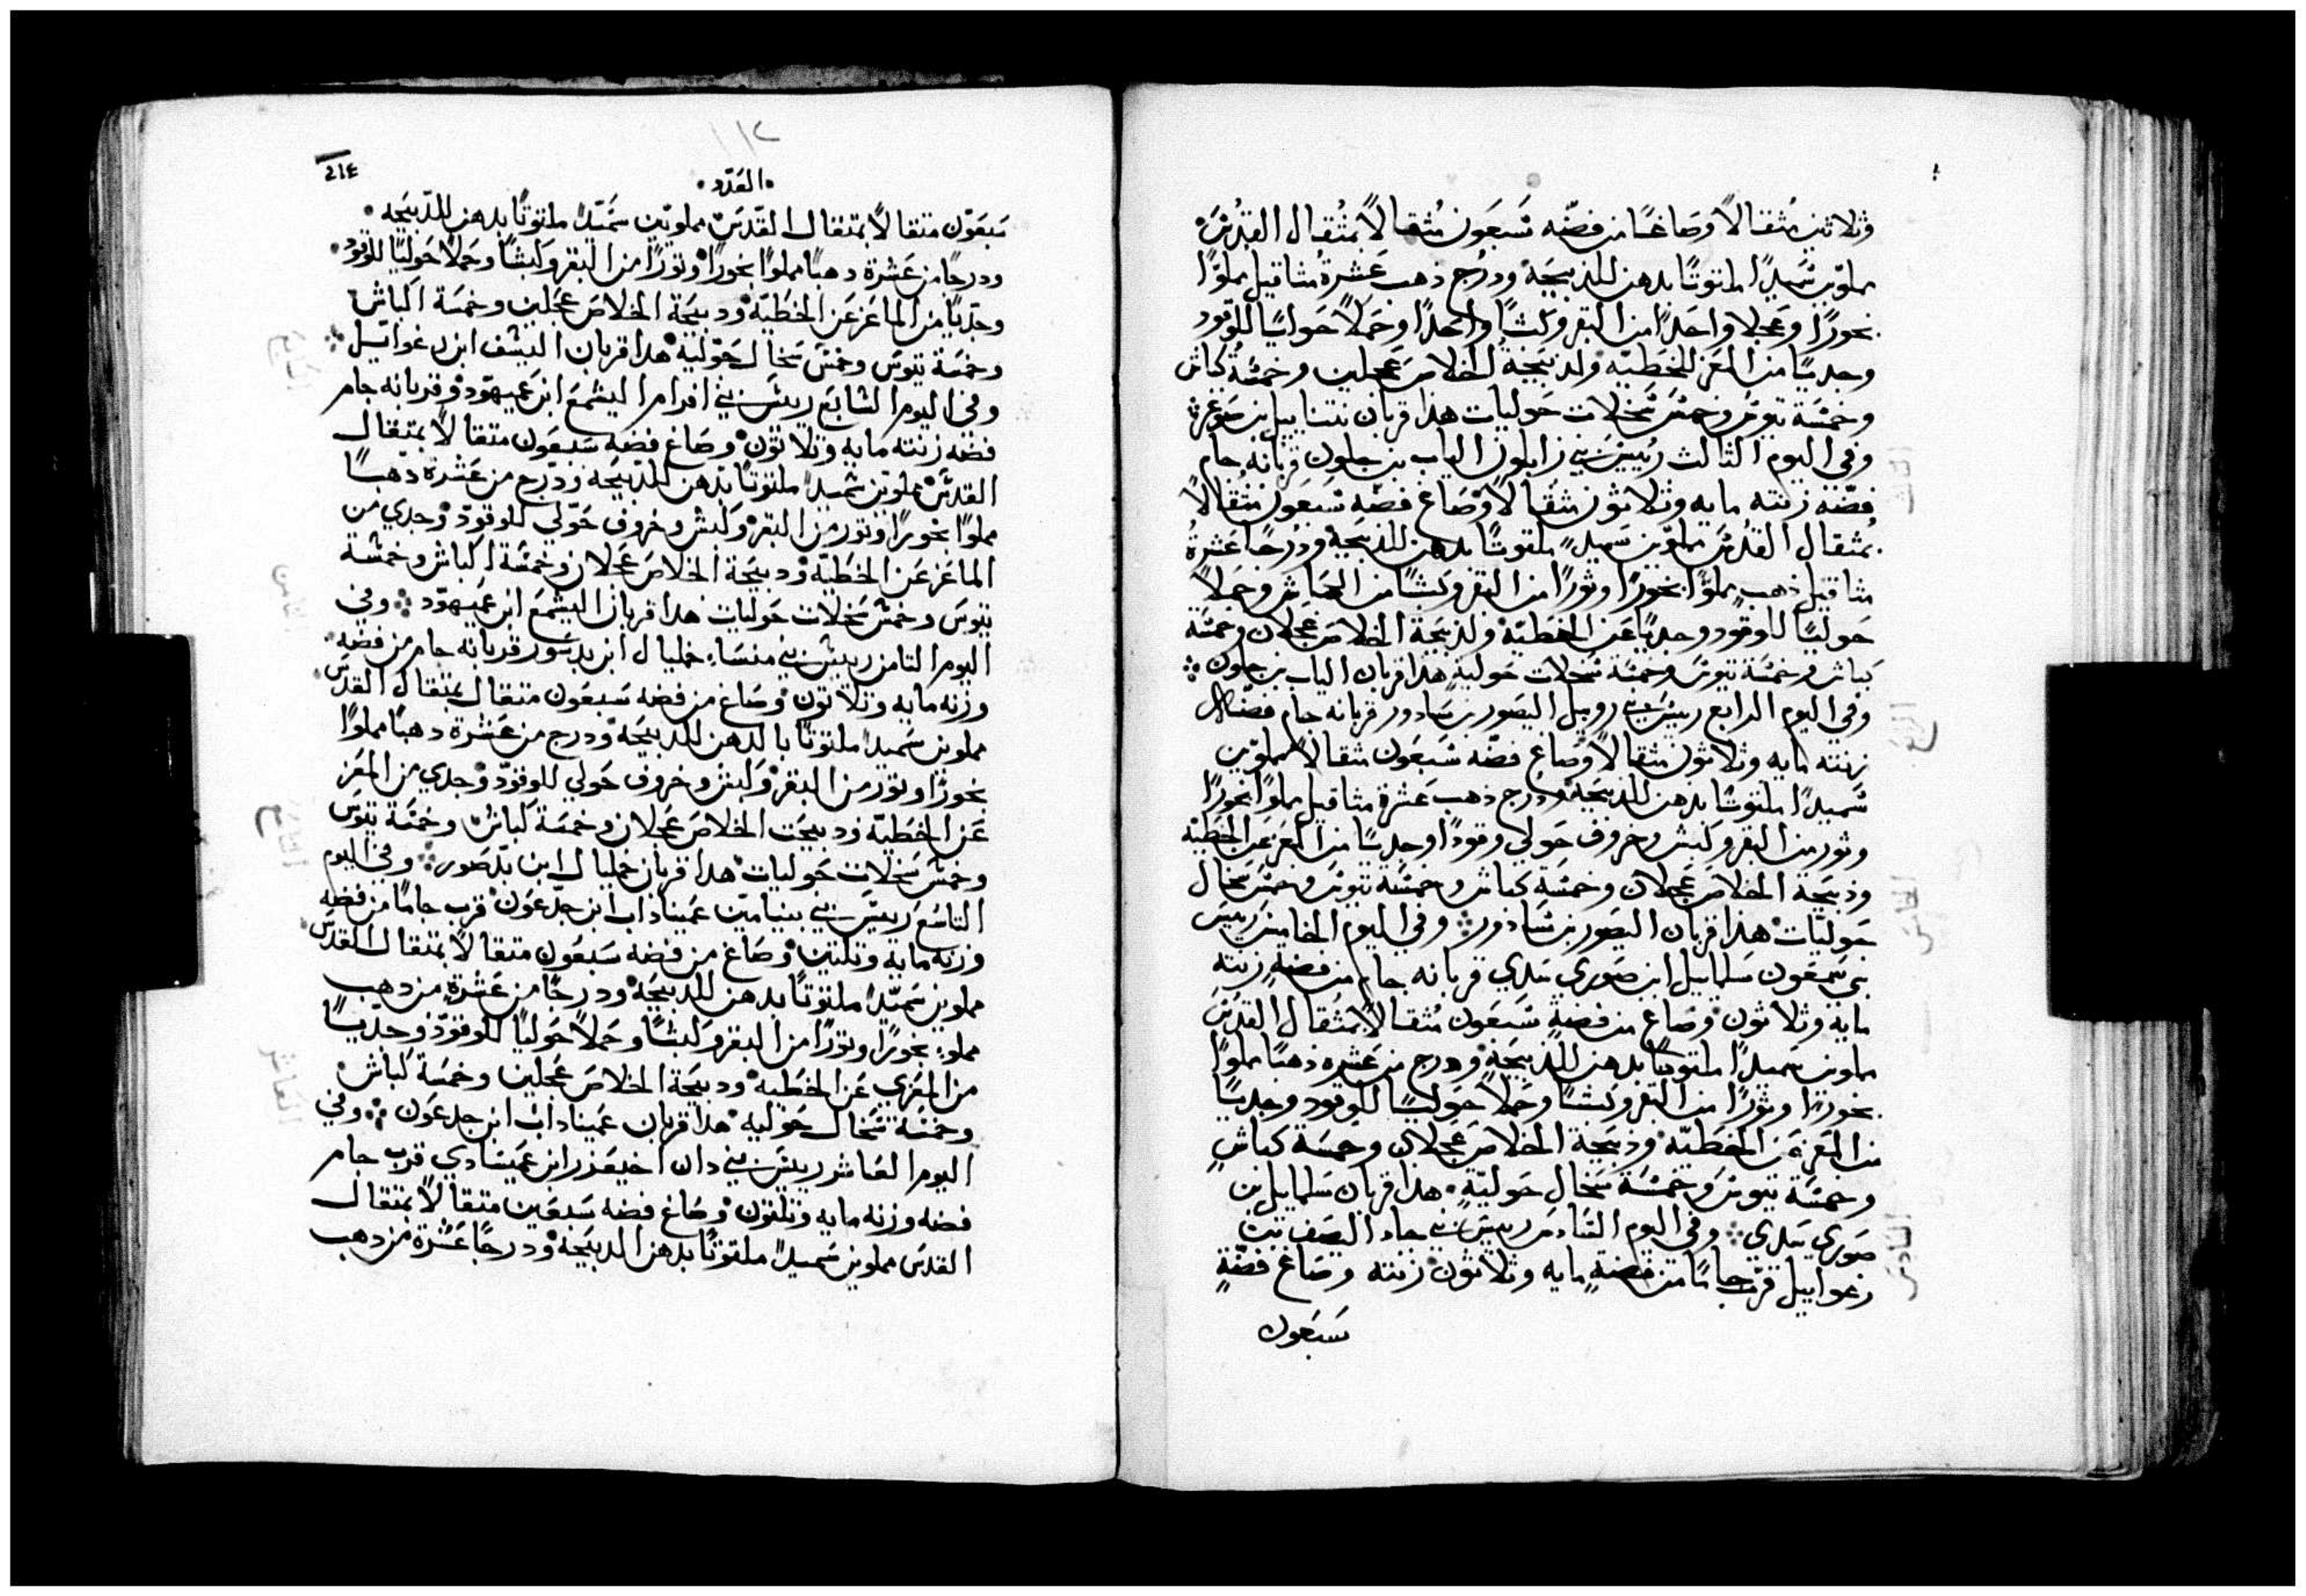 وثلاثين مثقالاً وصاغًا من فضّه سَبعَون مثقالاً بمثقال القدُس
مملوّين سَميدًا ملتوتًا بدهن للذبيحَة ودرُج ذهب عَشرة مثاقيل مملوًا
بخورًا وعَجلا واحَدًا من البقر وكبشًا واحَدًا وحَملاً حَوليًا للوقود
وجديًا من المعَز للخَطيّه ولذبيَحة الخلاص عَجلين وخمسَة كباش
وخمسَة تيوسَ وخمسَ سَخلات حَوليات هذا قربان نتناييل بن صَوغر
وفي اليوم الثالث رييسَ بني زابلون الياب بن حلون قربانه جام
فضّه زنته مايه وثلاثون مثقالاً وصَاغ فضّه سَبعَون مثقالاً
بمثقال القدُسَ مملوّين سَميد ملتوتًا بدهن للذبيَحة ودرُجًا عَشرة
مثاقيل ذهب مملوًا بخورًا وثورًا من البقر وكبشًا من الكباش وحَملاً
حَوليًا للوقود وجديًا عَن الخَطيّة ولذبيَحة الخلاص عَجلان وخمسَة
كباش وخمسَة تيوسَ وخمسَة سَخلات حَولية هذا قربان الياب بن حلون
وفي اليوم الرابع رييسَ بني روبيل اليصَور بن سَادور قربانه جام فضّه
زنته مايه وثلاثون مثقالاً وصَاغ فضّه سَبعَون مثقالاً مملوّين
سَميدًا ملتوتًا بدهن للذبيَحة ودرج ذهب عَشرة مثاقيل مملوًا بخورًا
وثور من البقر وكبش وخروف حَولي وقودًا وجديًا من المعَز عَن الخطيّه
وذبيَحة الخلاص عَجلان وخمسَة كباش وخمسَة تيوسَ وخمسَ سَخال
حَوليّات هذا قربان اليصَور بن سَادور وفي اليوم الخامسَ رييسَ
بني سَمعَون سَلماييل ابن صَوري سَدي قربانه جام من فضةٍ زنته
مايه وثلاثون وصَاغ من فضةٍ سَبعَون مثقالاً بمثقال القدسَ
مملوين سَميدًا ملتوتًا بدهن للذبيحَة ودرج من عَشره ذهبًا مملوًا
بخورًا وثورًا من البقر وكبشًا وحَملاً حَوليًا للوقود وجديًا
من المعَز عَن الخَطيّه وذبيَحة الخلاصَ عَجلان وخمسَة كباشٍ
وخمسَة تيوسَ وخمسَة سَخال حَوليّةٍ هذا قربان سَلماييل بن
صَوري سَدي وفي اليوم السَادسَ رييسَ بني جاد اليصَف بن
رعواييل قرّب جامًا من فضةٍ مايه وثلاثون زنته وصَاغ فضّةٍ
سَبعَون
٢١٤
العَدد
سَبعَون متقالاً بمتقال القدّسَ مملويّن سَميّدًا ملتوتًا بدهن للدّبيحَه
ودرجًا من عَشرة دهبًا مملوًا بخورًا وتورًا من البقر وكبشًا وحَملاً حَوليًا للوقود
وجدّيًا من الماعَز عَن الخَطيّة ودبيحَة الخلاصَ عَجلين وخمسَة اكباش
وخمسَة تيوسَ وخمسَ سَخال حَوليه هدا قربان اليسَف ابن رعواييل
وفي اليوم السَابع رييسَ بني افرام اليشمعَ ابن عَميهوّد وقربانه جام
فضّه زنته مايه وتلاتون وصَاغ فضه سَبعَون متقالاً بمتقال
القدسَ مملوين سَميدًا ملتوتًا بدهن للدبيحَه ودرج من عَشرة دهبًا
مملوًا بخورًا وتور من البقر وكبش وخروف حَوّلي للوقودّ وجدي من
الماعَز عَن الخَطيّة ودبيحَة الخلاصَ عَجلان وخمسَة اكباش وخمسَة
تيوسَ وخمسَ سَخلات حَوليات هدا قربان اليشمعَ ابن عَميهوّد وفي
اليوم التامن رييسَ بني منسَا خمليال ابن بدسَور قربانه جام من فضه
وزنه مايه وتلاتون وصَاغ من فضه سَبعَون متقال بمتقال القدسَ
مملوين سَميدًا ملتوتًا بالدهن للدبيحَة ودرج من عَشرة دهبًا مملوًا
بخورًا وتور من البقر وكبش وخروف حَولي للوقودّ وجدي من المعَز
عَن الخَطيّة ودبيحَت الخلاصَ عَجلان وخمسَة كباش وخمسَة تيوسَ
وخمسَ سَخلات حَوليات هدا قربان خمليال ابن بدّصَور وفي اليوم
التاسَع رييسَ بني بنيامين عَميناداب ابن جدّعَون قرب جامًا من فضه
وزنه مايه وتلتين وصَاغ من فضه سَبعَون متقالاً بمتقال القدسَ
مملوين سَميّدًا ملتوتًا بدهن للدبيحَه ودرجًا من عَشرةٍ من دهب
مملوءٍ بخورًا وتورًا من البقر وكبشًا وحَملاً حَوليًا للوقودّ وجدّيًا
من المعَزي عَن الخَطية ودبيحَة الخلاصَ عَجلين وخمسَة كباش
وخمسَة سَخال حَوليه هدا قربان عَميناداب ابن جدعَون وفي
اليوم العَاشر رييسَ بني دان اخيعَزر ابن عَميسَادي قرب جام
فضه وزنه مايه وتلتون وصَاغ فضه سَبعَين متقالاً بمتقال
القدسَ مملوين سَميدًا ملتوتًا بدهن الدبيحَة ودرجًا عَشرة من دهب